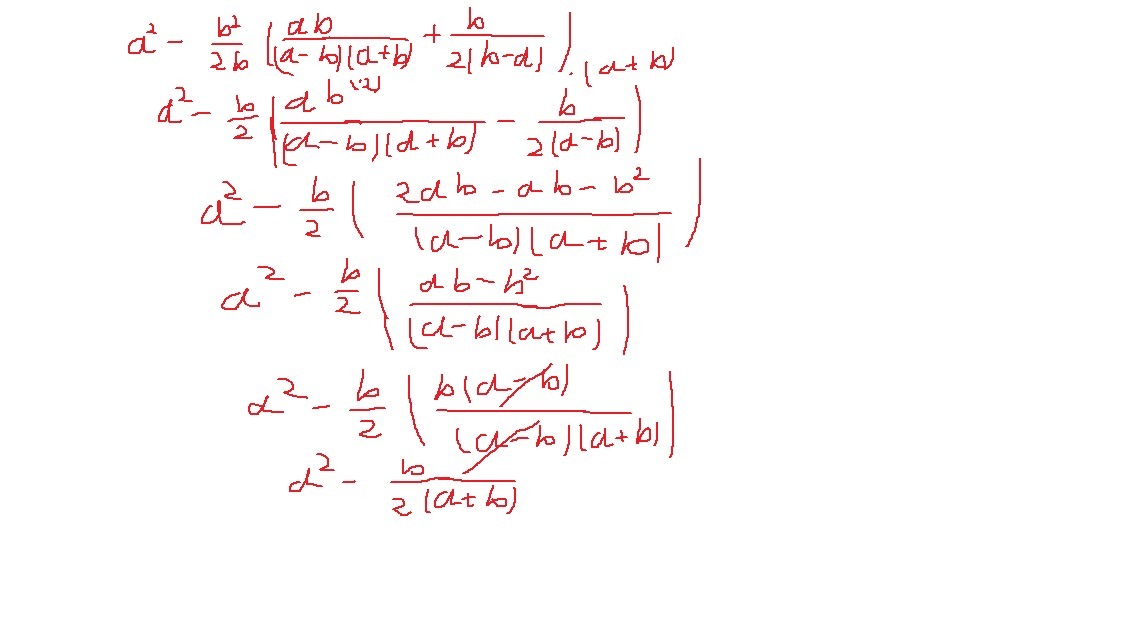 a² - b²/2b (ab/((a-b)(a+b)) + b/(2(b-a)))
a² - b/2 (ab⁽·²⁾/((a-b)(a+b)) - b·(a+b)/(2(a-b)))
a² - b/2 ((2ab - ab - b²)/((a-b)(a+b)))
a² - b/2 ((ab - b²)/((a-b)(a+b)))
a² - b/2 (b(a-b)/((a-b)(a+b)))
a² - b/(2(a+b))